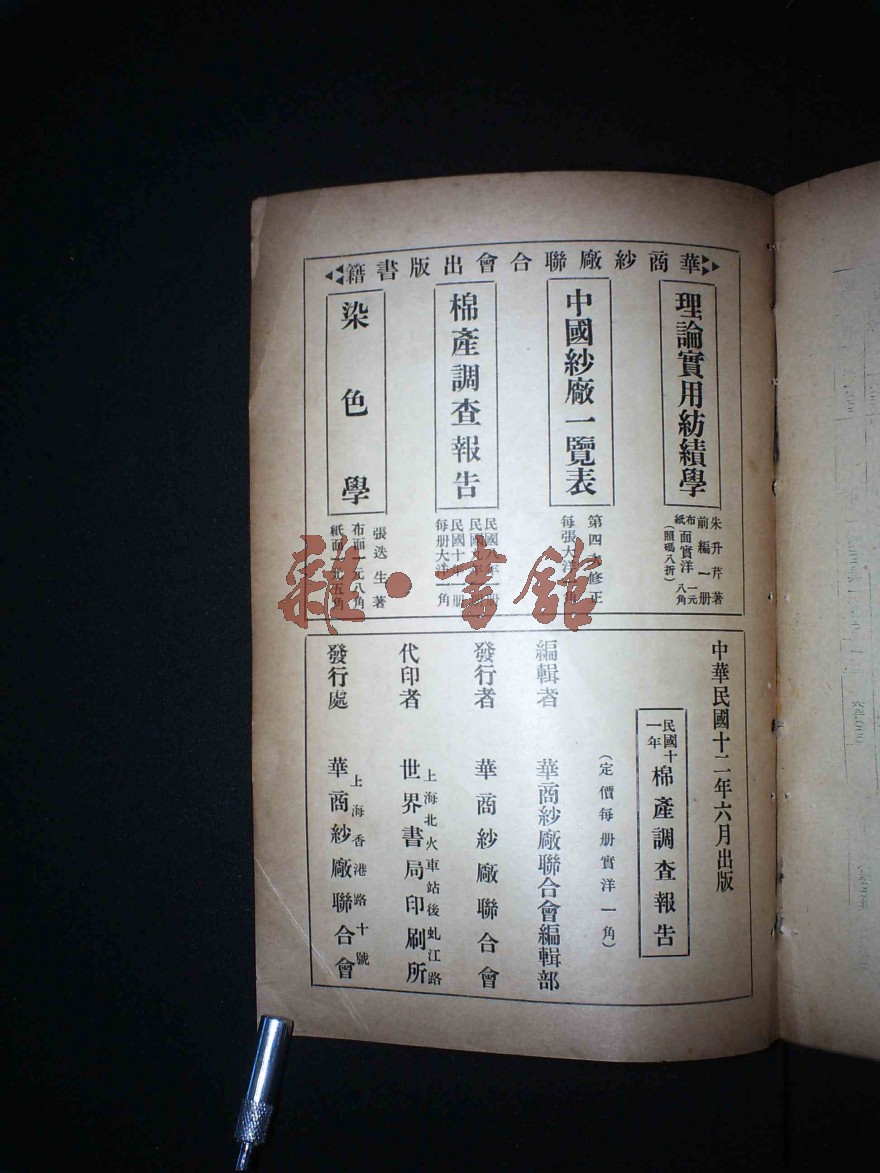 華商紗廠聯合會出版書籍
理論實用紡績學
朱升芹著
前編一册
布面實洋一元
紙面實洋八角
(照碼八折)
中國紗廠一覽表
第四次修正
每張大洋一角
棉產調查報告
民國八年一册
民國九年一册
民國十年一册
每册大洋一角
染色學
張迭生著
布面一元八角
紙面一元五角
中華民國十二年六月出版
民國十一年
棉產調查報告
(定價每册實洋一角)
編輯者 華商紗廠聯合會編輯部
發行者 華商紗廠聯合會
代印者 上海北火車站後虬江路
世界書局印刷所
發行處 上海香港路十號
華商紗廠聯合會
雜·書館